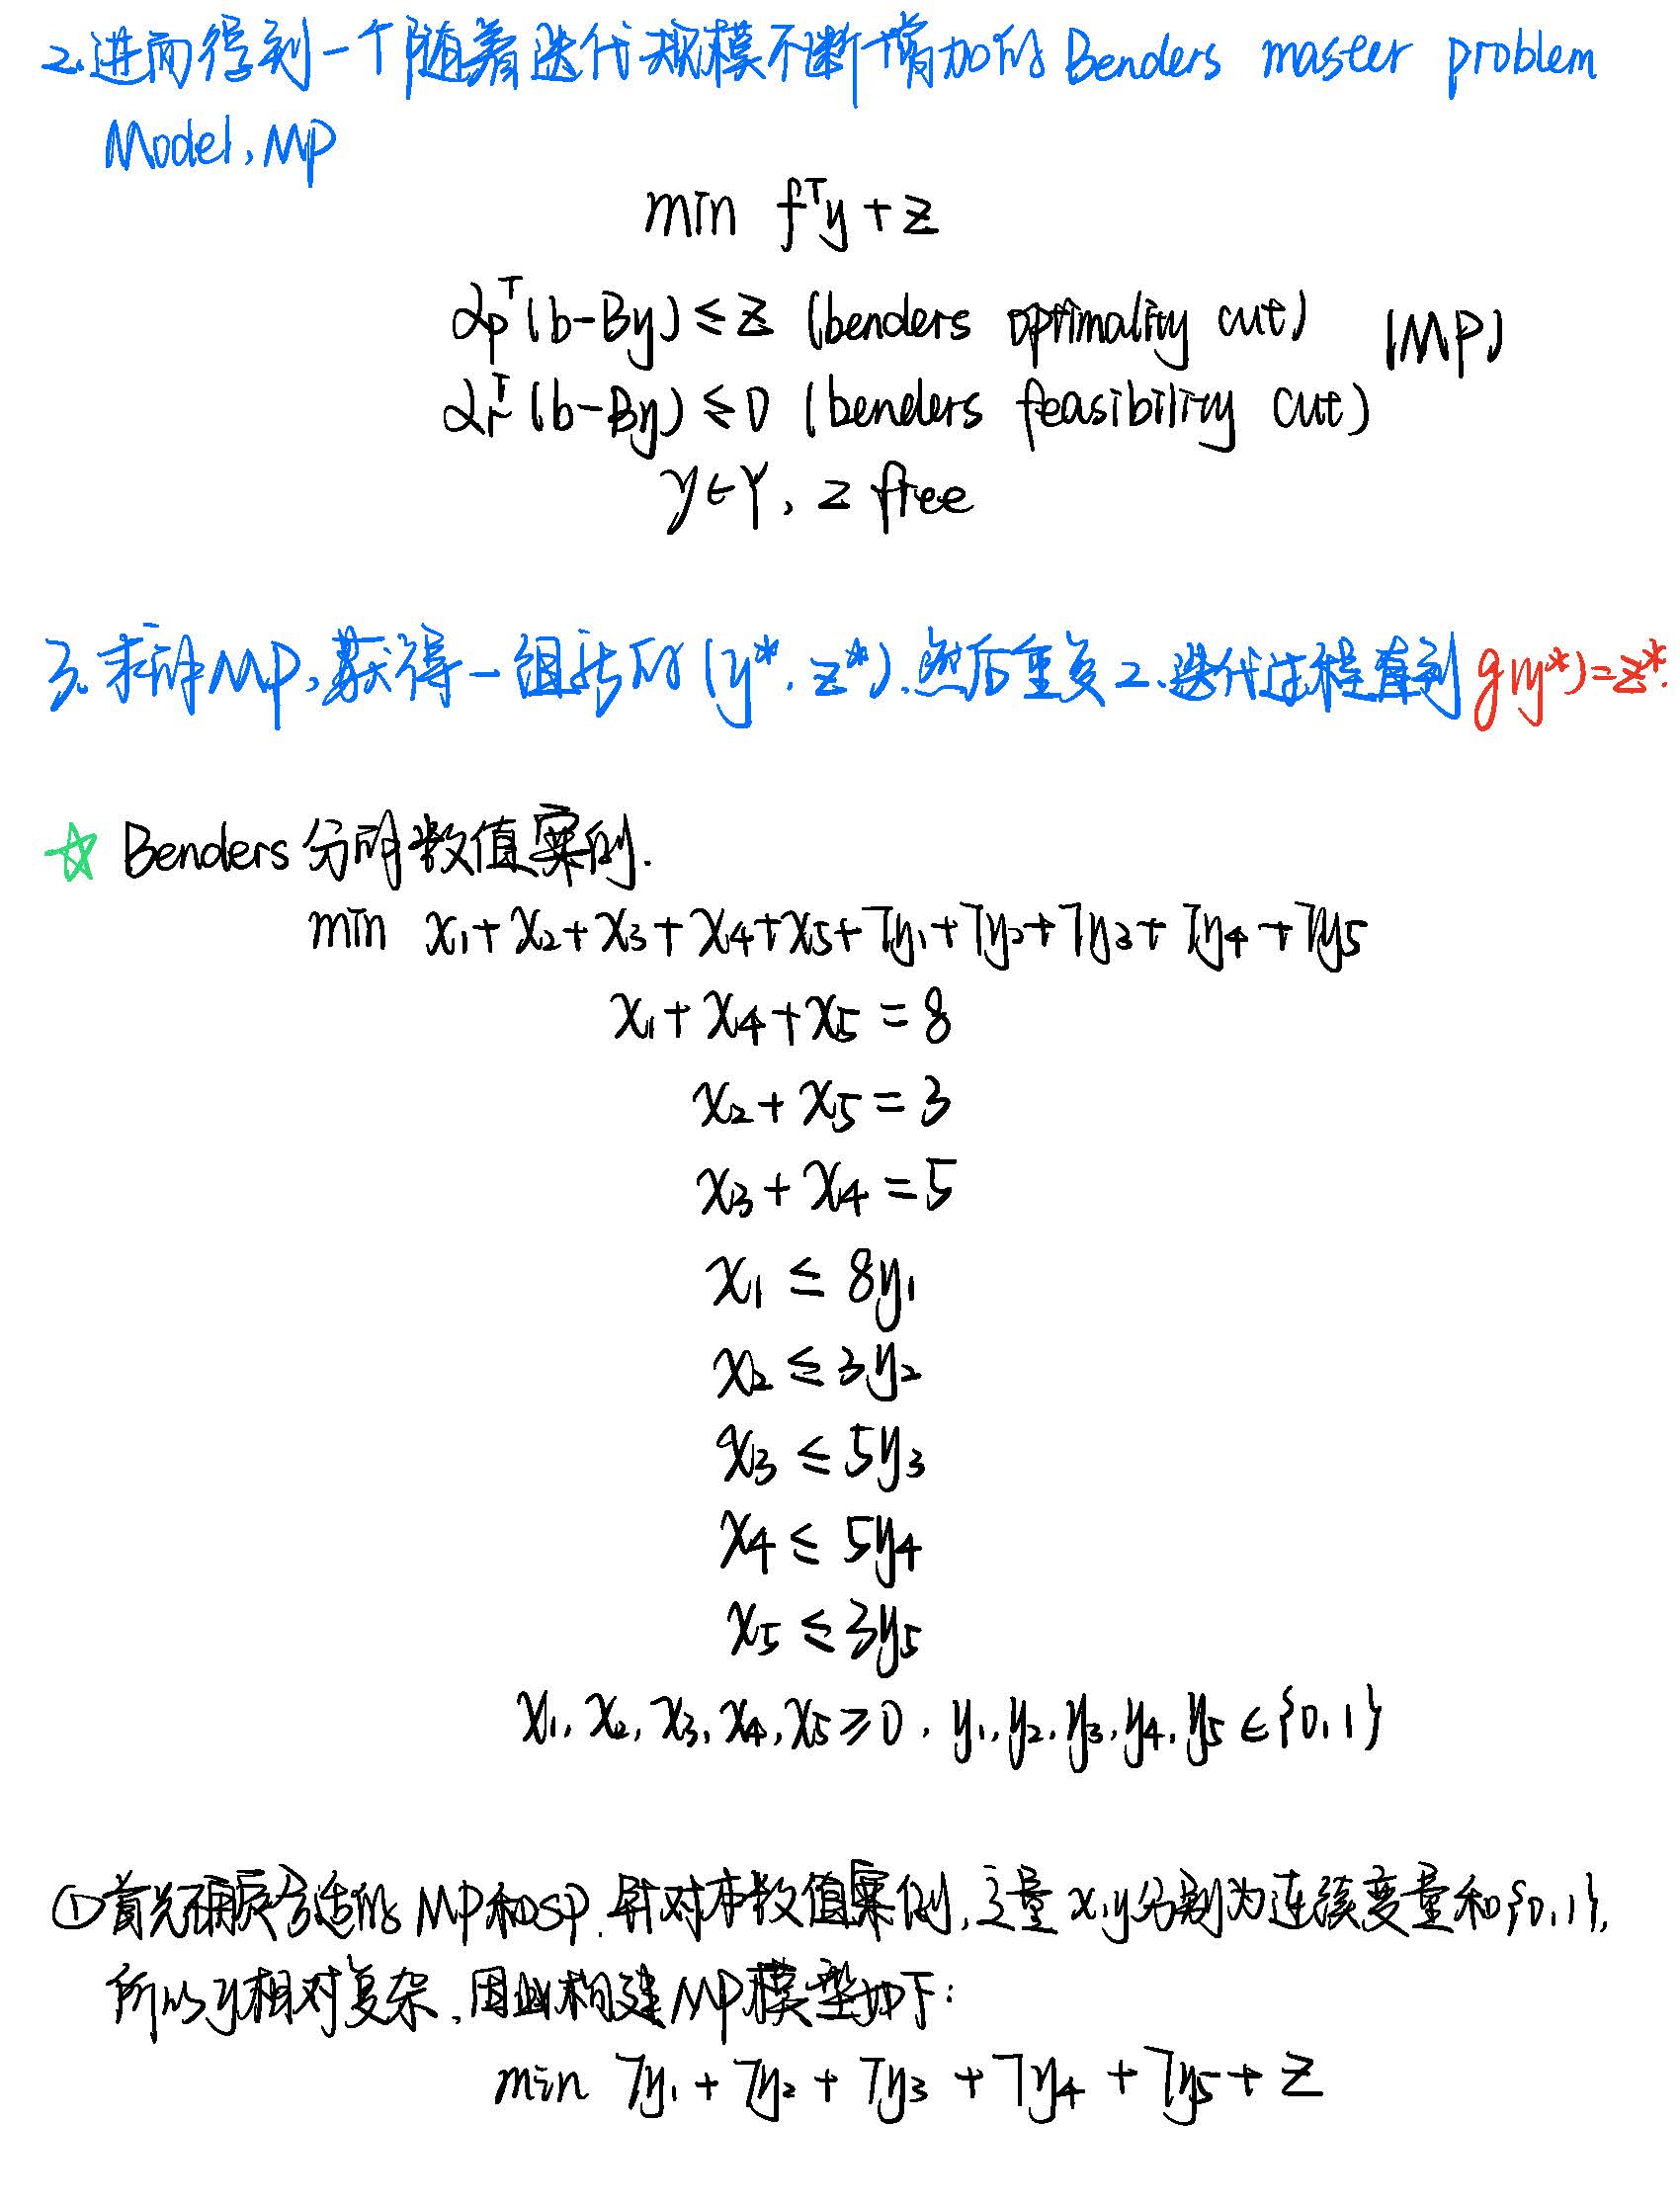 2.进而得到一个随着迭代规模不断增加的Benders master problem
Model, MP
min fᵀy + z
αₚᵀ(b-By) ≤ z (benders optimality cut) (MP)
αᵣᵀ(b-By) ≤ 0 (benders feasibility cut)
y∈Y, z free
3.求解MP,获得一组新的(y*, z*).然后重复2.迭代过程直到g(y*)=z*.
☆ Benders分解数值案例.
min x₁+x₂+x₃+x₄+x₅+7y₁+7y₂+7y₃+7y₄+7y₅
x₁+x₄+x₅=8
x₂+x₅=3
x₃+x₄=5
x₁ ≤ 8y₁
x₂ ≤ 3y₂
x₃ ≤ 5y₃
x₄ ≤ 5y₄
x₅ ≤ 3y₅
x₁, x₂, x₃, x₄, x₅ ≥ 0, y₁, y₂, y₃, y₄, y₅ ∈ {0,1}
①首先确定合适的MP和SP.针对本数值案例,变量x,y分别为连续变量和{0,1},
所以y相对复杂,因此构建MP模型如下:
min 7y₁ + 7y₂ + 7y₃ + 7y₄ + 7y₅ + z